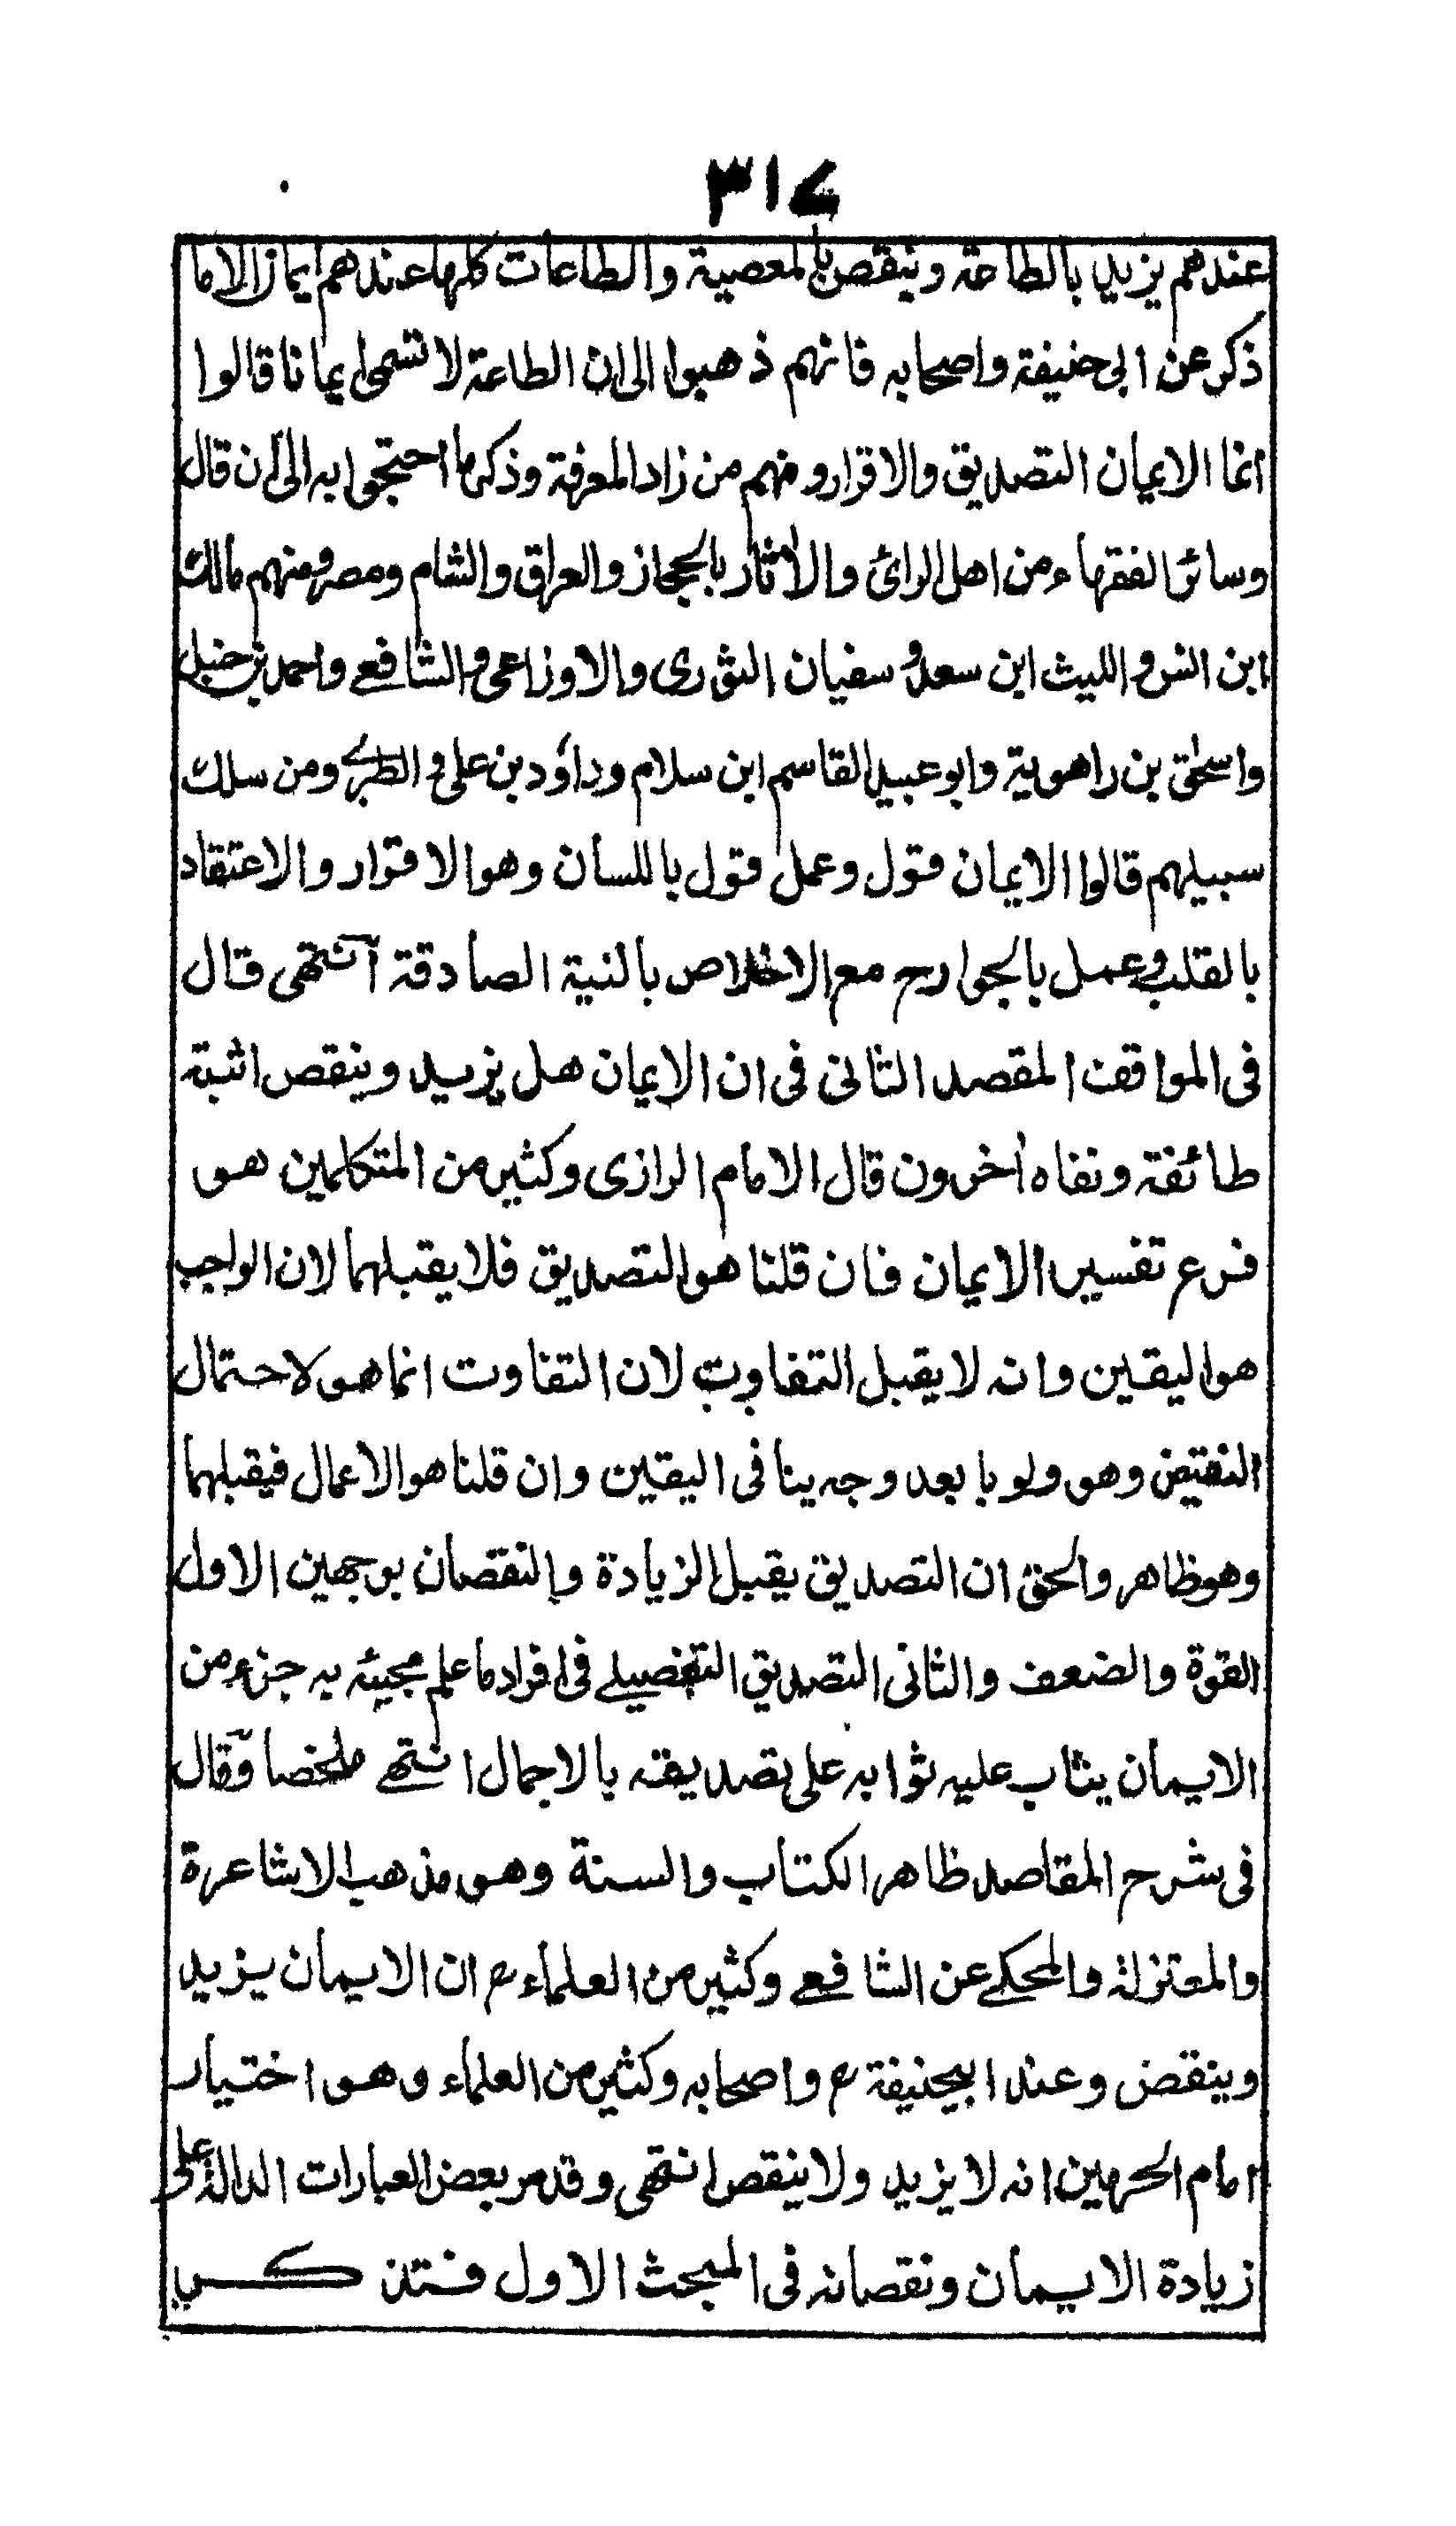 ٣١٧
عندهم يزيد بالطاعة وينقص بالمعصية والطاعات كلها عندهم ايمان الا ما
ذكر عن ابى حنيفة واصحابه فانهم ذهبوا الى ان الطاعة لا تسمى ايمانا قالوا
انما الايمان التصديق والاقرار ومنهم من زاد المعرفة وذكر ما احتجوا به الى ان قال
وسائر الفقهاء من اهل الرائ والأثار بالحجاز والعراق والشام ومصر ومنهم مالك
ابن انس والليث ابن سعد وسفيان الثورى والاوزاعى والشافعے واحمد بن حنبل
واسحٰق بن راهوية وابو عبيد القاسم ابن سلام وداؤد بن على والطبرے ومن سلك
سبيلهم قالوا الايمان قول وعمل قول باللسان وهو الاقرار والاعتقاد
بالقلب وعمل بالجوارح مع الاخلاص بالنية الصادقة آنتهى قال
فى المواقف المقصد الثانى فى ان الايمان هل يزيد وينقص اثبته
طائفة ونفاه اٰخرون قال الامام الرازى وكثير من المتكلمين هو
فرع تفسير الايمان فان قلنا هو التصديق فلا يقبلهما لان الواجب
هو اليقين وانه لا يقبل التفاوت لان التفاوت انما هو لاحتمال
النقيض وهو ولو بابعد وجه ينافى اليقين وان قلنا هو الاعمال فيقبلهما
وهو ظاهر والحق ان التصديق يقبل الزيادة والنقصان بوجهين الاول
القوة والضعف والثانى التصديق التفصيلے فى افراد ما علم مجيئه به جزء من
الايمان يثاب عليه ثوابه على تصديقه بالاجمال انتهے ملخصا وقال
فى شرح المقاصد ظاهر الكتاب والسنة وهو مذهب الاشاعرة
والمعتزلة والمحكے عن الشافعے وكثير من العلماء رح ان الايمان يزيد
وينقض وعند ابيحنيفة رح واصحابه وكثير من العلماء وهو اختيار
امام الحرمين انه لا يزيد ولا ينقص انتهى وقد مر بعض العبارات الدالة على
زيادة الايمان ونقصانه فى المبحث الاول فتذكر